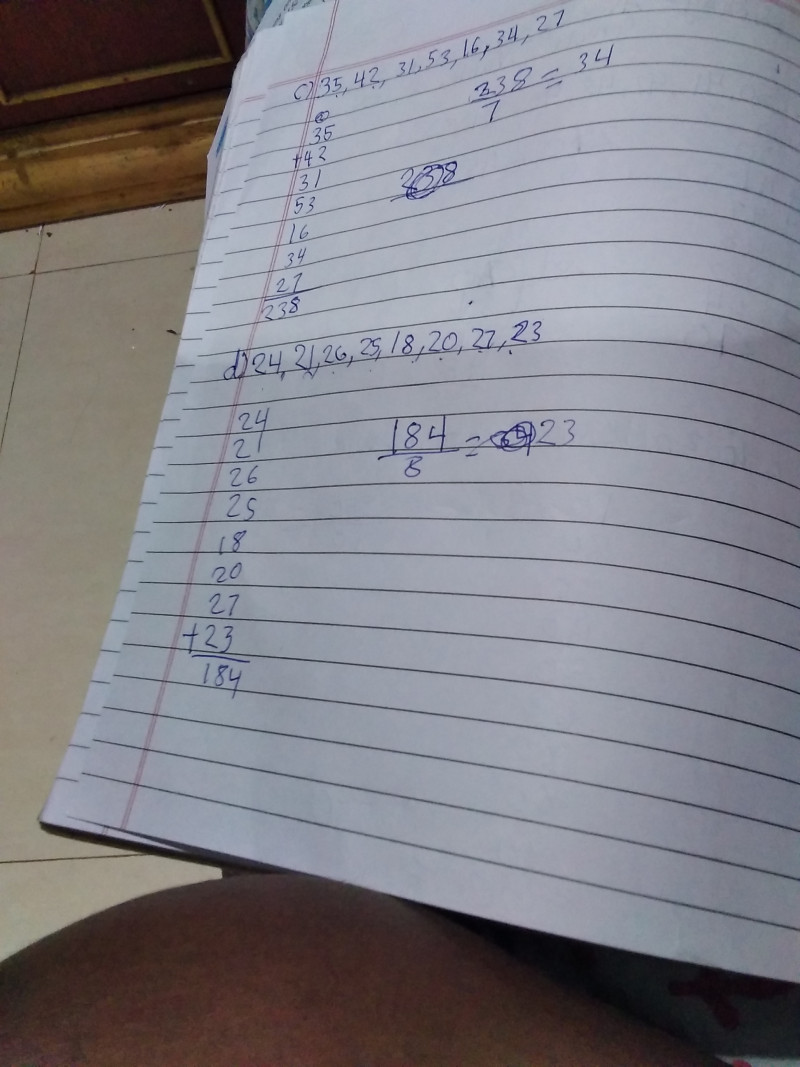 c) 35, 42, 31, 53, 16, 34, 27
35
+42
31
53
16
34
27
238
238
7
= 34
d) 24, 21, 26, 25, 18, 20, 27, 23
24
21
26
25
18
20
27
+23
184
184
8
= 23